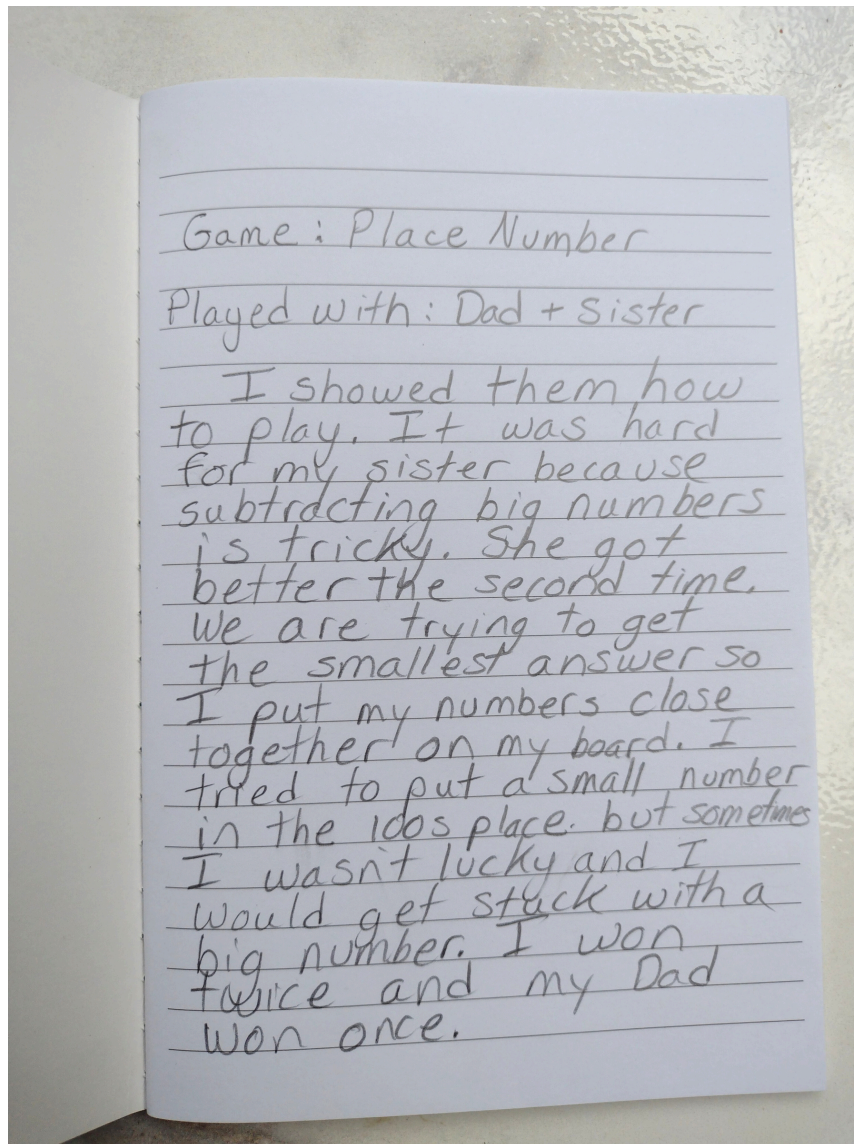 Game: Place Number
Played with: Dad + Sister
I showed them how
to play. It was hard
for my sister because
subtracting big numbers
is tricky. She got
better the second time.
We are trying to get
the smallest answer so
I put my numbers close
together on my board. I
tried to put a small number
in the 100s place. but sometimes
I wasn't lucky and I
would get stuck with a
big number. I won
twice and my Dad
won once.